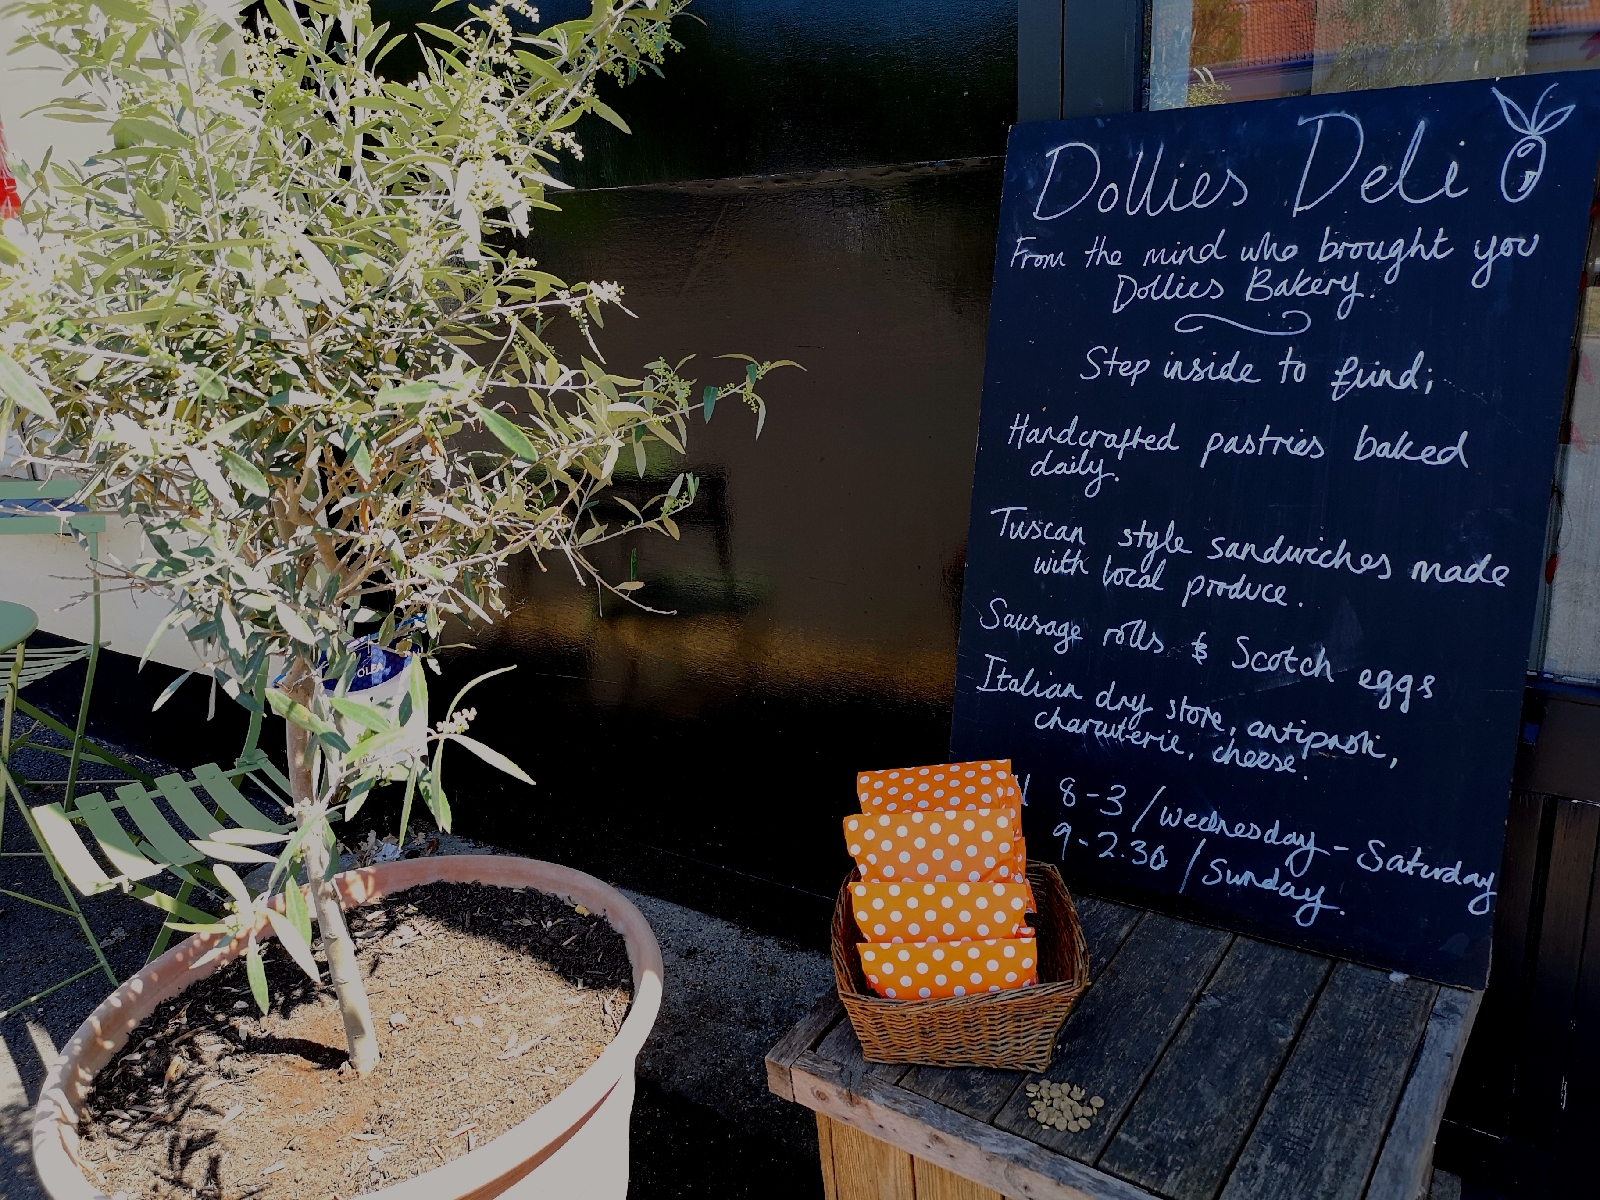 Dollies Deli
From the mind who brought you
Dollies Bakery.
Step inside to fiind;
Handcrafted pastries baked
daily.
Tuscan style sandwiches made
with local produce.
Sausage rolls & Scotch eggs
Italian dry store, antipasti,
charcuterie, cheese.
8-3 / Wednesday - Saturday
9-2.30 / Sunday.
OLEA